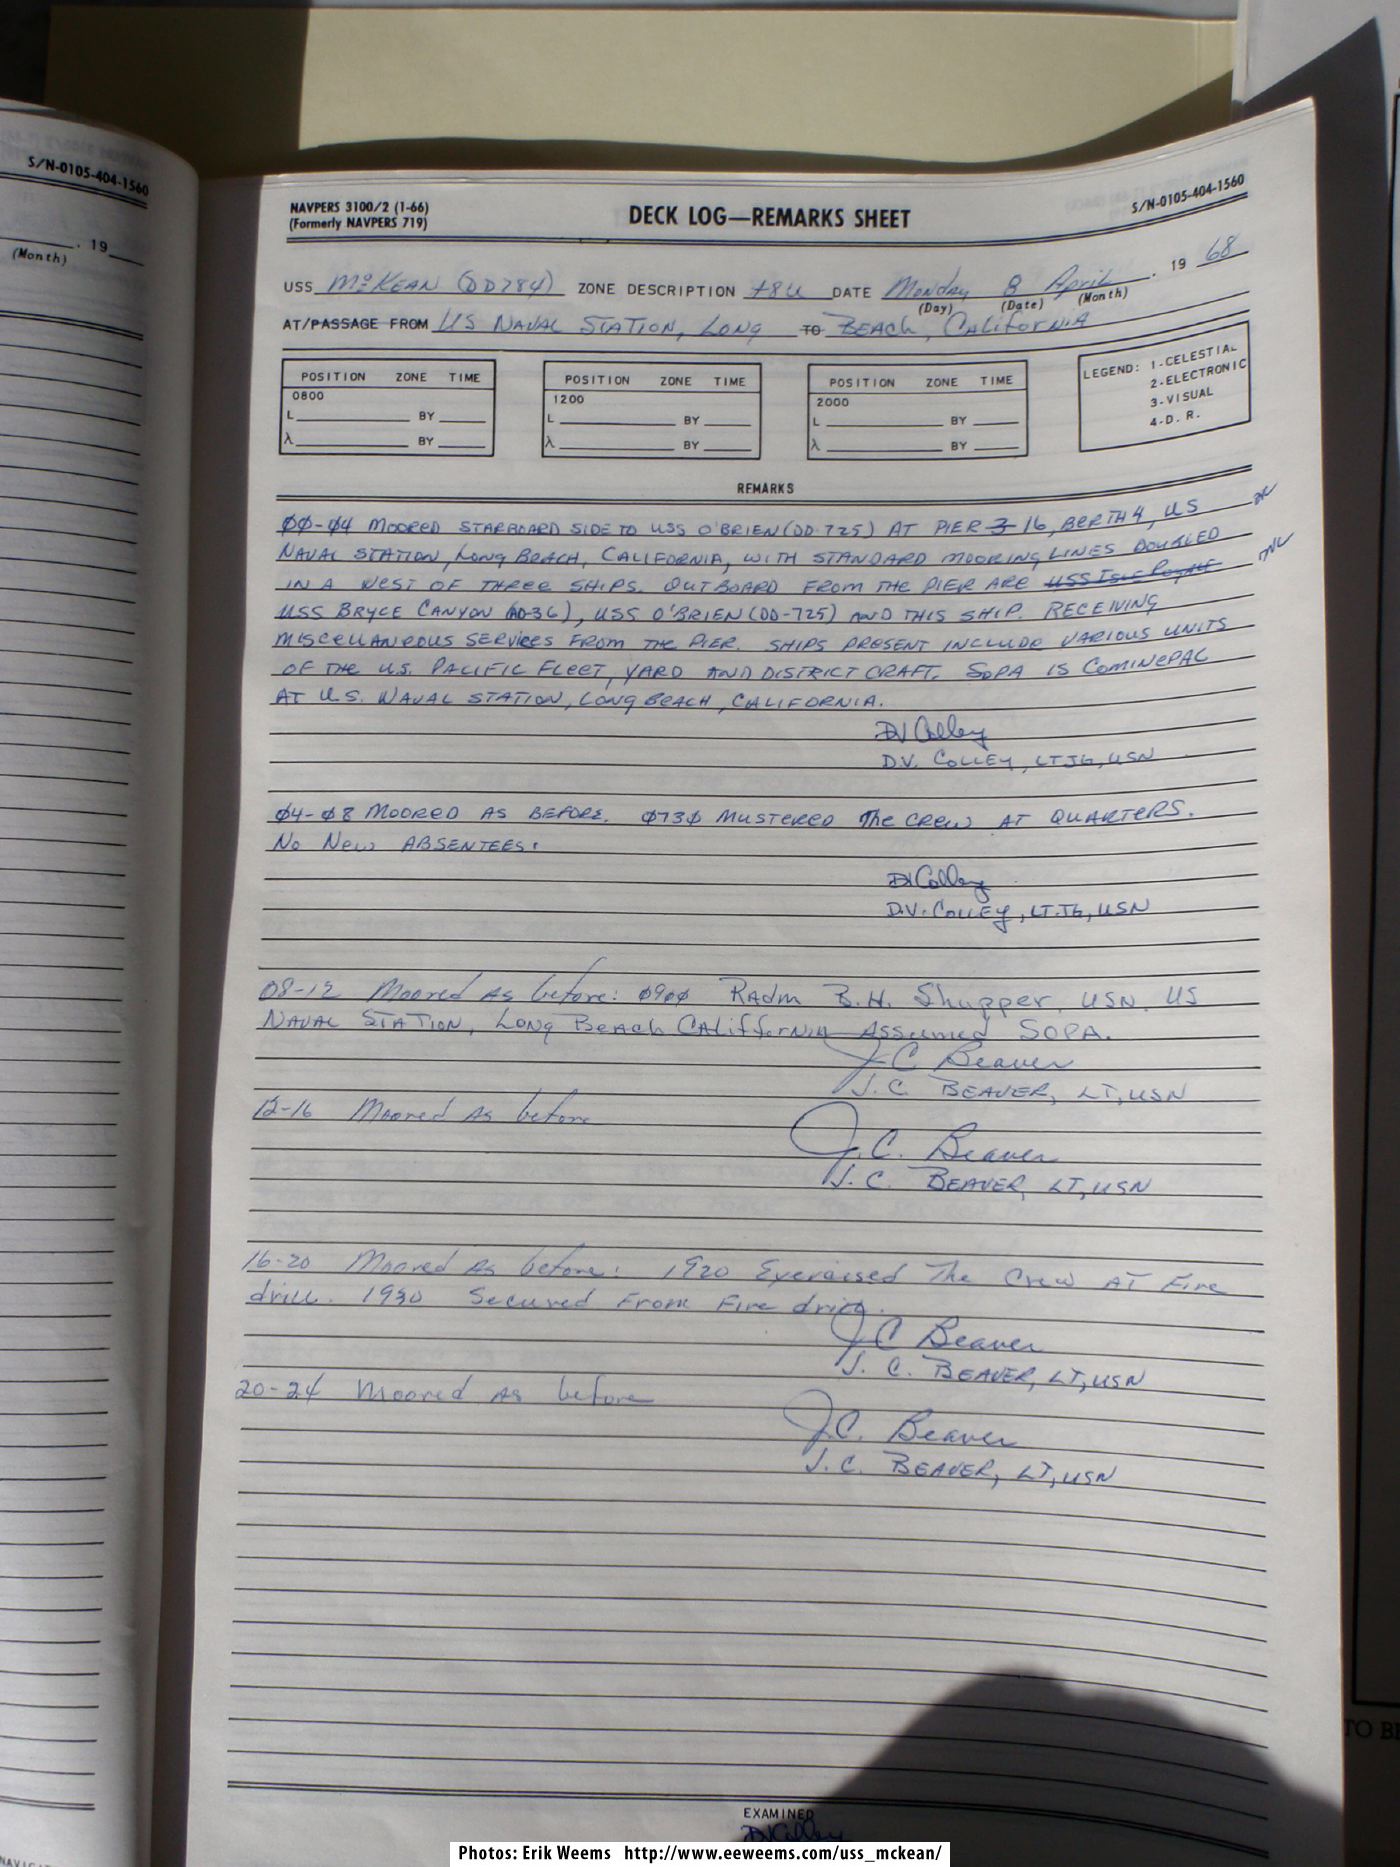 S/N-0105-404-1560
. 19
(Month)
NAVPERS 3100/2 (1-66)
(Formerly NAVPERS 719)
DECK LOG—REMARKS SHEET
S/N-0105-404-1560
USS McKEAN (DD784) ZONE DESCRIPTION +8U DATE Monday 8 April . 19 68
(Day) (Date) (Month)
AT/PASSAGE FROM US NAVAL STATION, LONG TO BEACH, CALIFORNIA
POSITION ZONE TIME
0800
L BY
λ BY
POSITION ZONE TIME
1200
L BY
λ BY
POSITION ZONE TIME
2000
L BY
λ BY
LEGEND: 1-CELESTIAL
2-ELECTRONIC
3-VISUAL
4-D. R.
REMARKS
00-04 MOORED STARBOARD SIDE TO USS O'BRIEN (DD-725) AT PIER 3 16, BERTH 4, US
NAVAL STATION, LONG BEACH, CALIFORNIA, WITH STANDARD MOORING LINES DOUBLED
IN A NEST OF THREE SHIPS. OUTBOARD FROM THE PIER ARE USS ISLE ROYALE
USS BRYCE CANYON (AD-36), USS O'BRIEN (DD-725) AND THIS SHIP. RECEIVING
MISCELLANEOUS SERVICES FROM THE PIER. SHIPS PRESENT INCLUDE VARIOUS UNITS
OF THE U.S. PACIFIC FLEET, YARD AND DISTRICT CRAFT. SOPA IS COMINEPAC
AT U.S. NAVAL STATION, LONG BEACH, CALIFORNIA.
DV Colley
D.V. COLLEY, LTJG, USN
04-08 MOORED AS BEFORE. 0730 MUSTERED The CREW AT QUARTERS.
No New ABSENTEES.
DV Colley
D.V. COLLEY, LTJG, USN
08-12 Moored As before: 0900 RADM B.H. Shupper, USN US
NAVAL STATION, Long Beach California Assumed SOPA.
J.C Beaver
J. C. BEAVER, LT, USN
12-16 Moored As before
J.C. Beaver
J. C. BEAVER, LT, USN
16-20 Moored As before: 1920 Exercised The Crew AT Fire
drill. 1930 Secured From Fire drill.
J.C Beaver
J. C. BEAVER, LT, USN
20-24 Moored As before
J.C. Beaver
J. C. BEAVER, LT, USN
EXAMINED
DV Colley
TO BE
Photos: Erik Weems http://www.eeweems.com/uss_mckean/